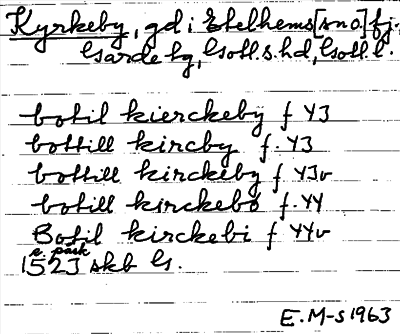 Kyrkeby, gd i Etelhems [sn o.] fj.
Garde tg, Gotl.s. hd, Gotl. l.
botil kierckeby f 43
bottill kircby f. 43
bottill kirckeby f 43v
botill kirckebö f. 44
Botil kirckebi f 44v
e påsk
1523 skb G.
E. M-s 1963